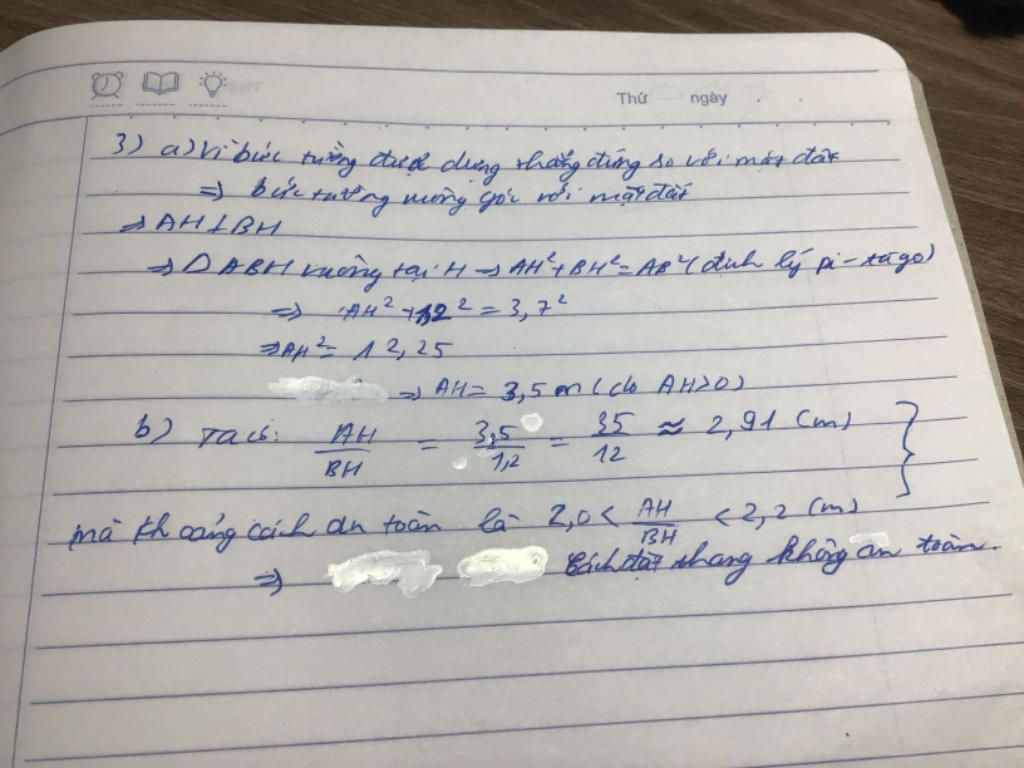 Thứ ngày
3) a) Vì bức tường được dựng thẳng đứng so với mặt đất
=> bức tường vuông góc với mặt đất
=> AH⊥BH
=> Δ ABH vuông tại H => AH² + BH² = AB² (định lý pi-tago)
=> AH² + 1,2² = 3,7²
=> AH² = 12,25
=> AH = 3,5 m (do AH>0)
b) Ta có: AH/BH = 3,5/1,2 = 35/12 ≈ 2,91 (m)
mà khoảng cách an toàn là 2,0 < AH/BH < 2,2 (m)
=> Cách đặt thang không an toàn.